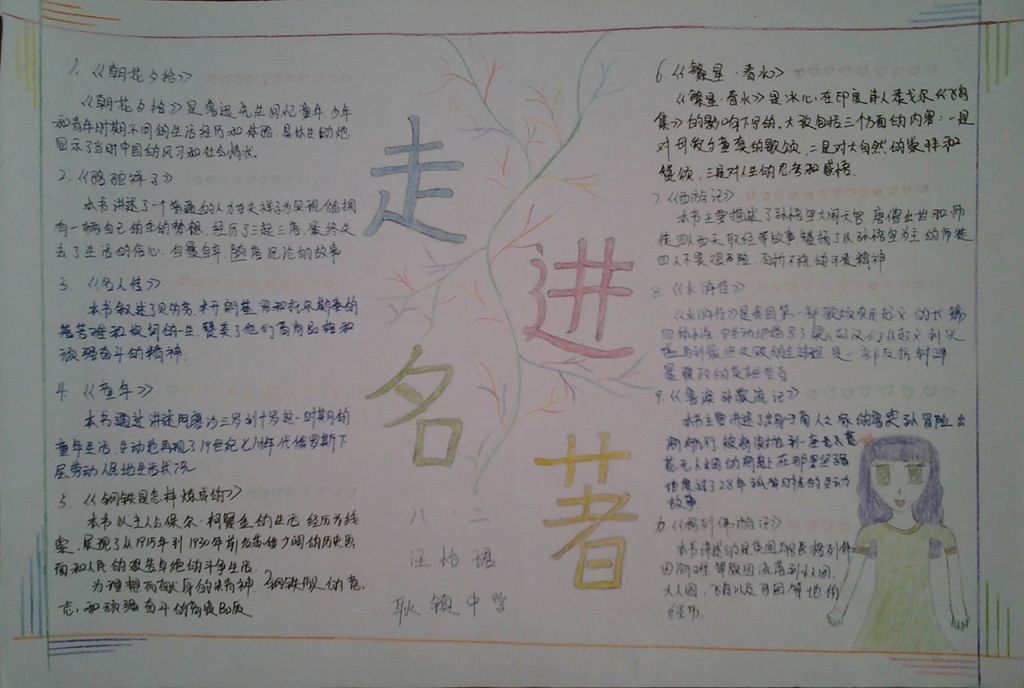 1. 《朝花夕拾》
《朝花夕拾》是鲁迅先生回忆童年、少年
和青年时期不同的生活经历和体验。具体生动地
显示了当时中国的风习和社会情状.
2.《骆驼祥子》
本书讲述了一个普通的人力车夫祥子为实现能拥
有一辆自己的车的梦想,经历了三起三落,最终失
去了生活的信心,自暴自弃,随意沉沦的故事
3. 《名人传》
本书叙述了贝多芬,米开朗基罗和托尔斯泰的
苦难和坎坷的一生,赞美了他们高尚品格和
顽强奋斗的精神.
4. 《童年》
本书通过讲述阿廖沙三岁到十岁这一时期的
童年生活,生动地再现了19世纪七八十年代俄罗斯下
层劳动人民地生活状况
5. 《钢铁是怎样炼成的》
本书以主人公保尔·柯察金的生活经历为线
索,展现了从1915年到1930年前后的历史画
面和人民的艰苦卓绝的斗争生活.
为理想而献身的精神,钢铁般的意
志,和顽强奋斗的高贵品质
走
进
名
著
八·二
汪怡珺
耿镇中学
6.《繁星·春水》
《繁星·春水》是冰心在印度诗人泰戈尔《飞鸟
集》的影响下写的,大致包括三个方面的内容:一是
对母爱与童真的歌颂,二是对大自然的崇拜和
赞颂,三是对人生的思考和感悟.
7.《西游记》
本书主要描述了孙悟空大闹天宫,唐僧出世和师
徒四人西天取经等故事,以孙悟空为主的师徒
四人不畏艰险,百折不挠的可贵精神.
8.《水浒传》
《水浒传》是我国第一部歌颂农民起义的长篇
9.《鲁滨孙漂流记》
本书主要讲述了鲁滨孙冒险出
荒无人烟的在那里坚强
地度过了28年孤单的生动
故事.
《格列佛游记》
本书讲述的是英国格列佛
因海难等故因流落到小人国,
大人国,飞岛以及等地的
经历.